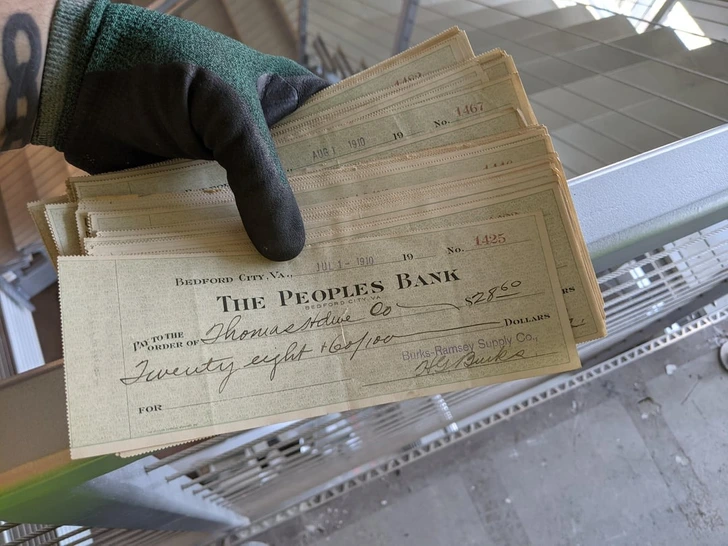 8
1467
No.
AUG 1 1910
19
No. 1425
BEDFORD CITY, VA.,
JUL 1 - 1910
19
THE PEOPLES BANK
BEDFORD CITY, VA
$28 60
PAY TO THE
ORDER OF
Thomas Hdwe Co
DOLLARS
RS
Twenty eight + 60/100
Burks-Ramsey Supply Co.,
HG Burks.
FOR